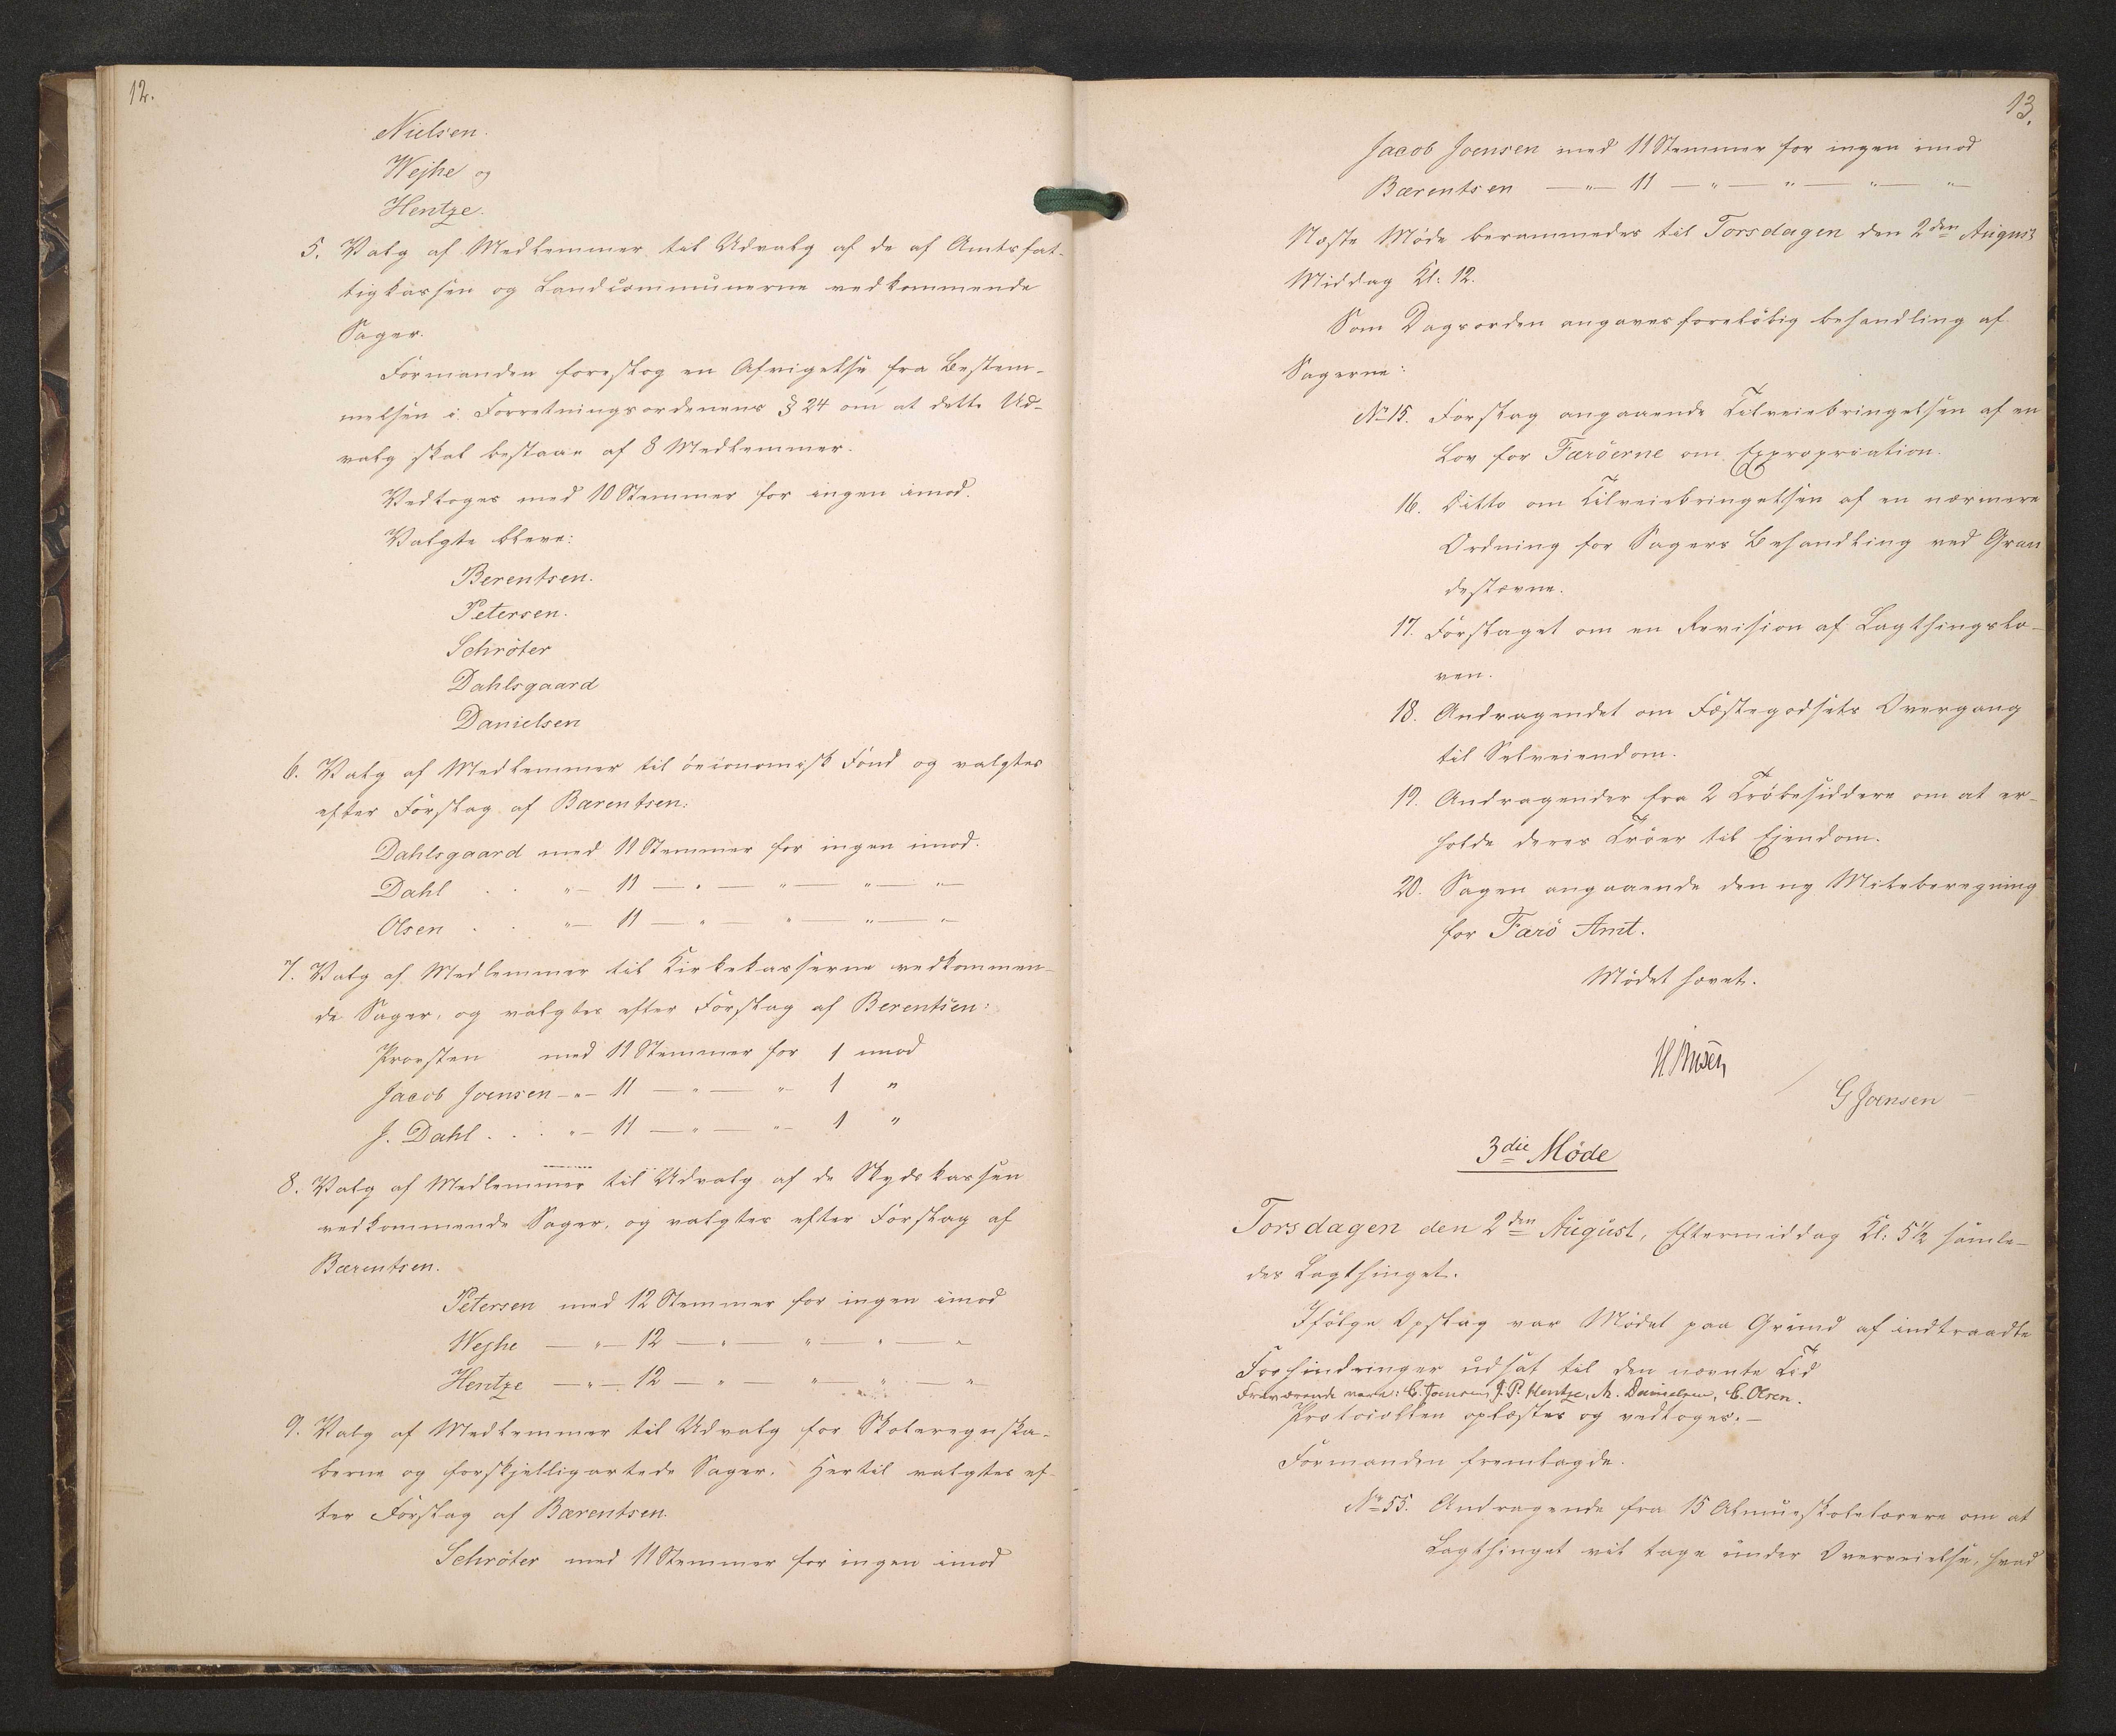 12.
Nielsen.
Wejhe og
Hentze.
5. Valg af Medlemmer til Udvalg af de af Amtsfat-
tigkassen og Landcommunerne vedkommende
Sager.
Formanden foreslog en Afvigelse fra Bestem-
melsen i Forretningsordenens § 24 om at dette Ud-
valg skal bestaae af 8 Medlemmer.
Vedtoges med 10 Stemmer for ingen imod.
Valgte bleve:
Berentsen.
Petersen.
Schröter
Dahlsgaard
Danielsen
6. Valg af Medlemmer til öconomisk Fond og valgtes
efter Forslag af Bærentsen:
Dahlsgaard med 11 Stemmer for ingen imod.
Dahl . . " — 11 — " — " — " — " —
Olsen . . " — 11 — " — " — " — " —
7. Valg af Medlemmer til Kirkekasserne vedkommen-
de Sager, og valgtes efter Forslag af Berentsen:
Provsten med 11 Stemmer for 1 imod
Jacob Joensen — " — 11 — " — " — 1 "
J. Dahl . . . " — 11 — " — " — 1 "
8. Valg af Medlemmer til Udvalg af de Skydskassen
vedkommende Sager, og valgtes efter Forslag af
Bærentsen.
Petersen med 12 Stemmer for ingen imod
Wejhe — " — 12 — " — " — " — "
Hentze — " — 12 — " — " — " — "
9. Valg af Medlemmer til Udvalg for Skoleregnska-
berne og forskjelligartede Sager. Hertil valgtes ef-
ter Forslag af Bærentsen.
Schröter med 11 Stemmer for ingen imod
13.
Jacob Joensen med 11 Stemmer for ingen imod
Bærentsen — " — 11 — " — " — " — " —
Næste Møde berammedes til Torsdagen den 2den August
Middag Kl: 12.
Som Dagsorden angaves foreløbig behandling af
Sagerne:
No 15. Forslag angaaende Tilveiebringelsen af en
Lov for Færöerne om Expropriation.
16. Ditto om Tilveiebringelsen af en nærmere
Ordning for Sagers Behandling ved Gran
destævne.
17. Forslaget om en Revision af Lagthingslo-
ven.
18. Andragendet om Fæstegodsets Overgang
til Selveiendom.
19. Andragender fra 2 Tröbesiddere om at er-
holde deres Tröer til Ejendom.
20. Sagen angaaende den ny Mileberegning
for Færö Amt.
Mødet hævet.
G Joensen
3die Møde
Torsdagen den 2den August, Eftermiddag Kl: 5½ samle-
des Lagthinget.
Ifølge Opslag var Mødet paa Grund af indtraadte
Forhindringer udsat til den nævnte Tid
Fraværende vare: C. Joensen, J. P. Hentze, M. Danielsen, C. Olsen.
Protocollen oplæstes og vedtoges. —
Formanden fremlagde.
No 55. Andragende fra 15 Almueskolelærere om at
Lagthinget vil tage under Overveielse, hvad